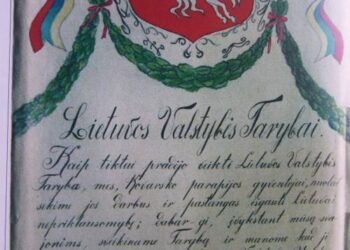 Lietuvos Valstybės Tarybai.
Kaip tiktai pradėjo veikti Lietuvos Valstybės
Taryba, mes, Kovarsko parapijos gyventojai, nuolat
sekėme jos darbus ir pastangas išgauti Lietuvai
nepriklausomybę; dabar-gi, įvykstant mūsų no-
rams, sveikiname Tarybą ir manome kad ji